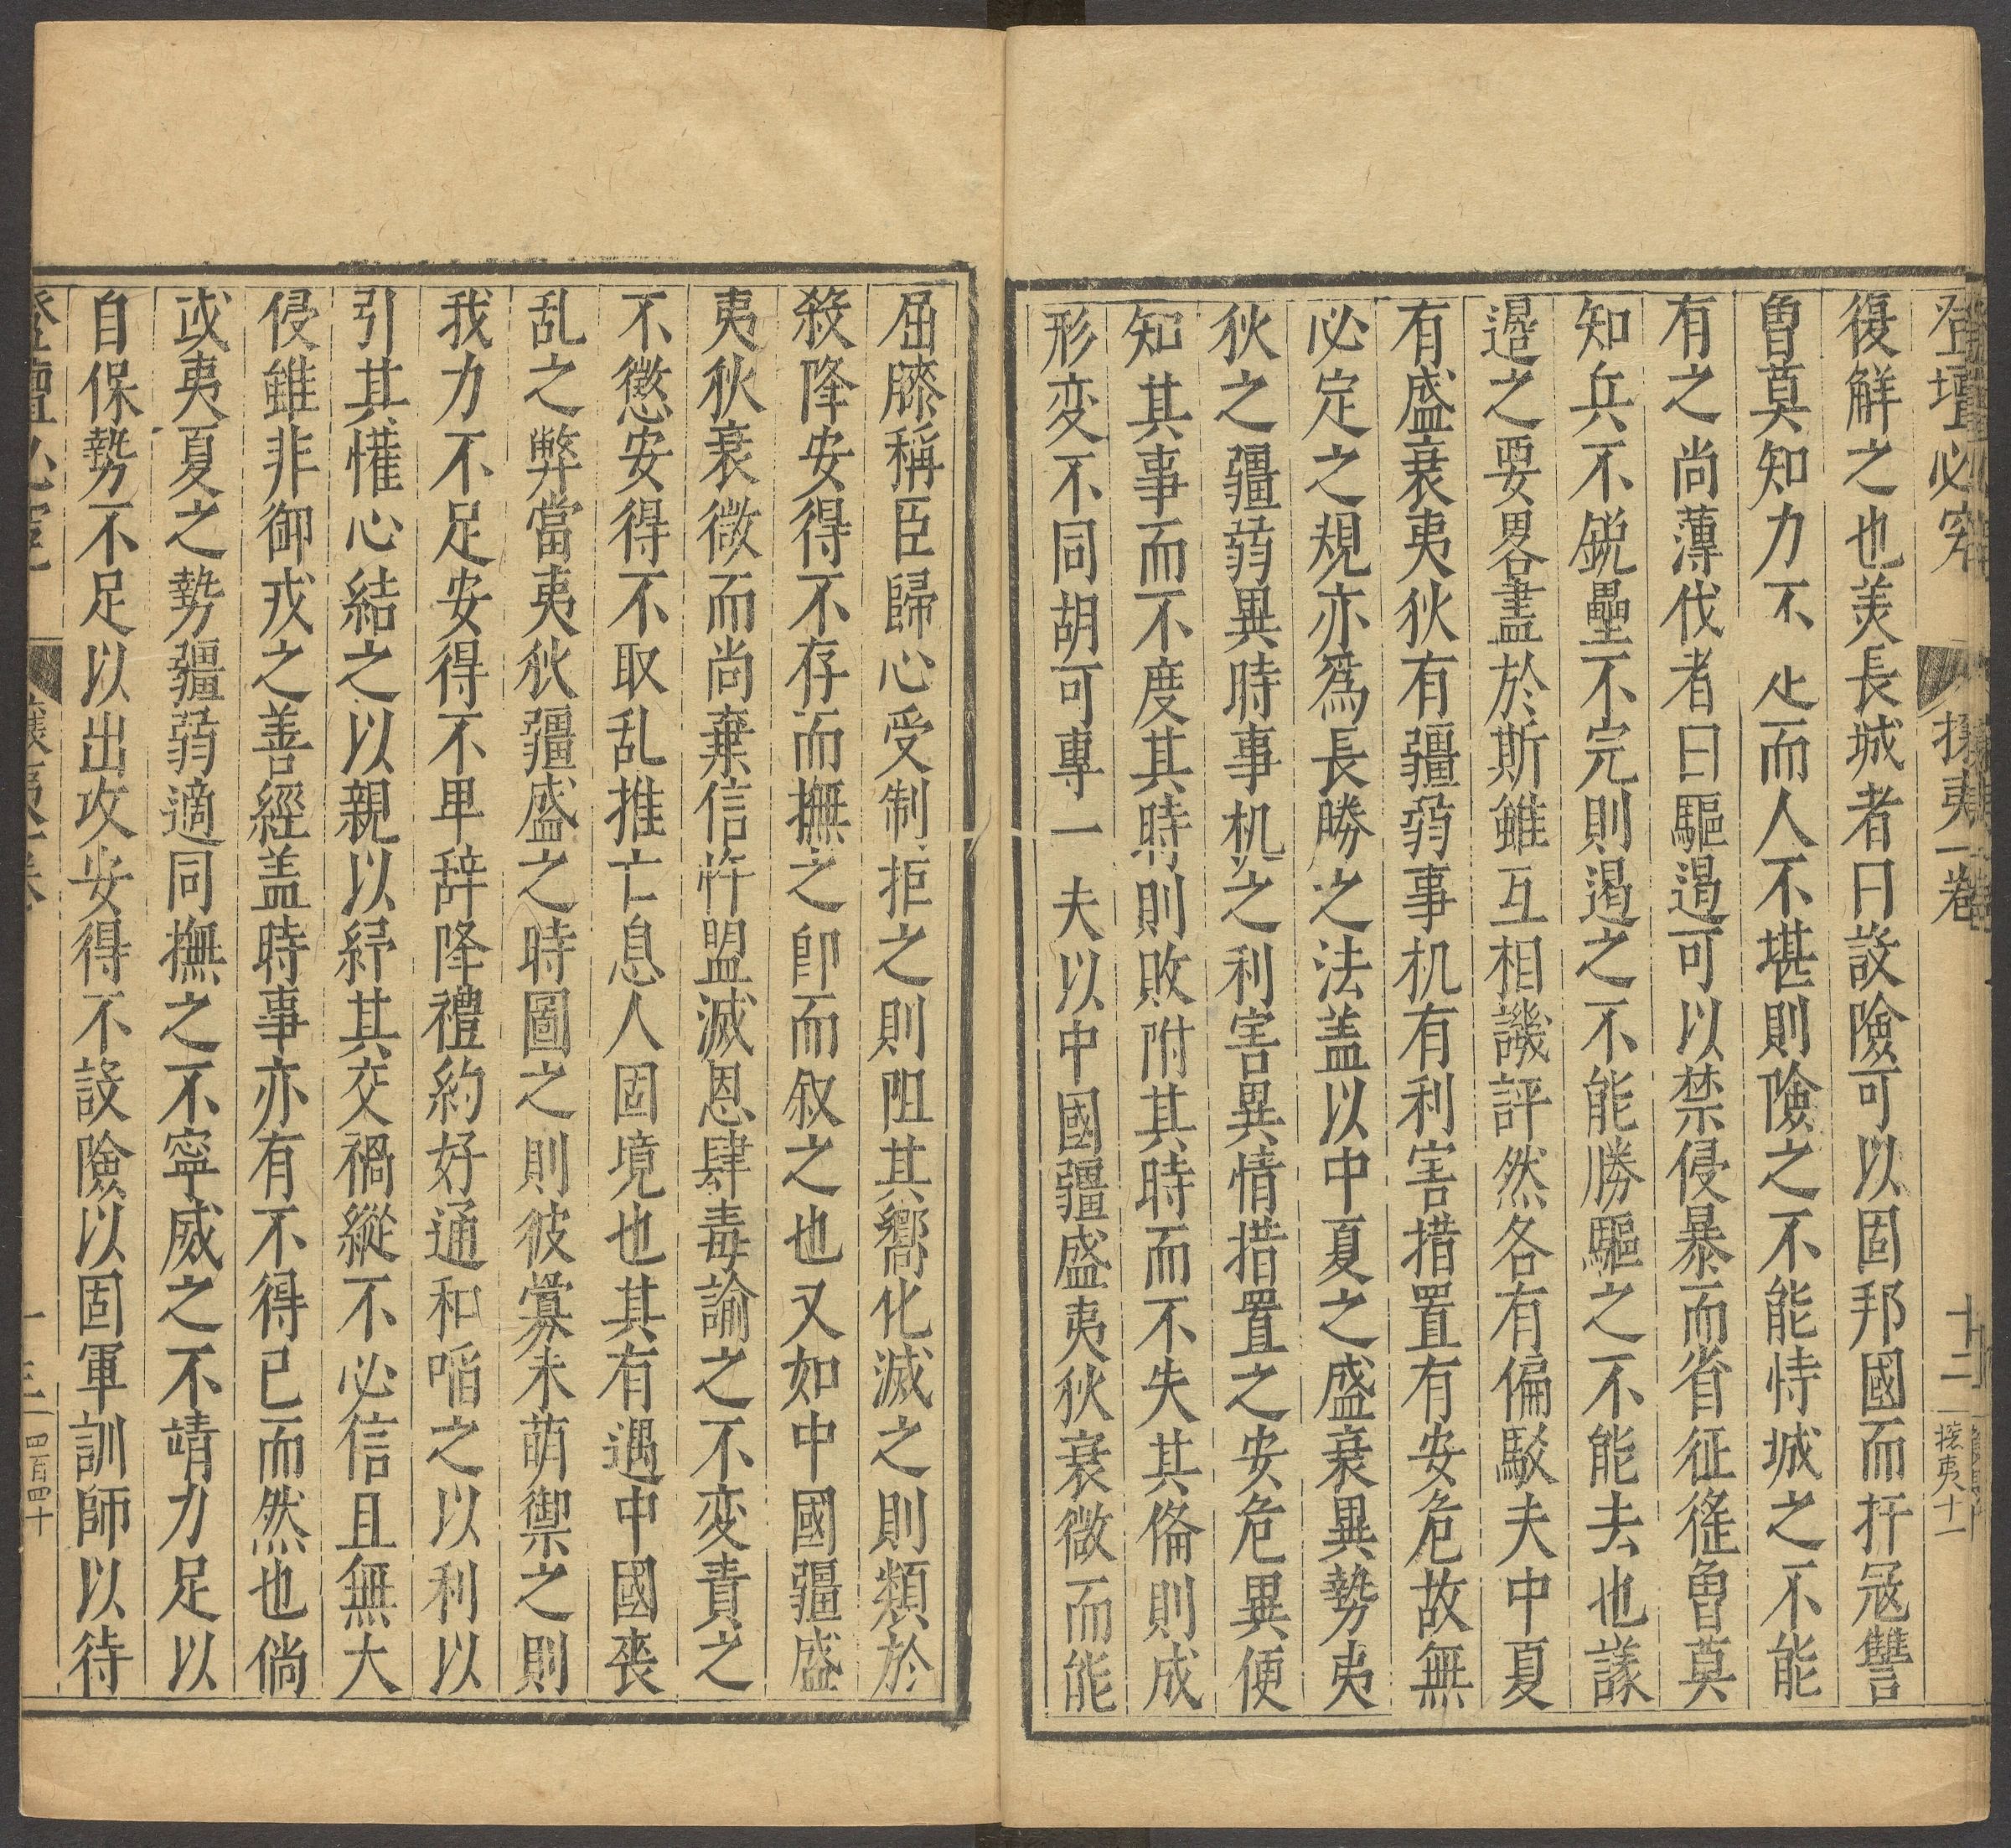 登壇必究
攘夷一卷
十二
攘夷十一
復觧之也美長城者曰設險可以固邦國而扞冦讐
曾莫知力不足而人不堪則險之不能恃城之不能
有之尚薄伐者曰驅遏可以禁侵暴而省征徭曾莫
知兵不銳壘不完則遏之不能勝驅之不能去也議
邊之要畧盡於斯雖互相譏評然各有偏駁夫中夏
有盛衰夷狄有疆弱事机有利害措置有安危故無
必定之規亦爲長勝之法盖以中夏之盛衰異勢夷
狄之疆弱異時事机之利害異情措置之安危異便
知其事而不度其時則敗附其時而不失其偹則成
形变不同胡可專一夫以中國疆盛夷狄衰微而能
屈膝稱臣歸心受制拒之則阻其嚮化滅之則類於
殺降安得不存而撫之卽而叙之也又如中國疆盛
夷狄衰微而尚棄信忤盟滅恩肆毒諭之不变責之
不懲安得不取乱推亡息人固境也其有遇中國丧
乱之弊當夷狄疆盛之時圖之則彼釁未萌禦之則
我力不足安得不卑辞降禮約好通和啗之以利以
引其懽心結之以親以紓其交禍縱不必信且無大
侵雖非御戎之善經盖時事亦有不得已而然也倘
或夷夏之勢疆弱適同撫之不寧威之不靖力足以
自保勢不足以出攻安得不設險以固軍訓師以待
登壇必究
四百四十